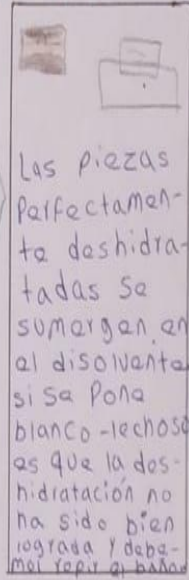 Las piezas
Perfectamen-
te deshidra-
tadas se
sumergen en
el disolvente
si se Pone
blanco-lechoso
es que la des-
hidratación no
ha sido bien
lograda y debe-
mos repir el baño